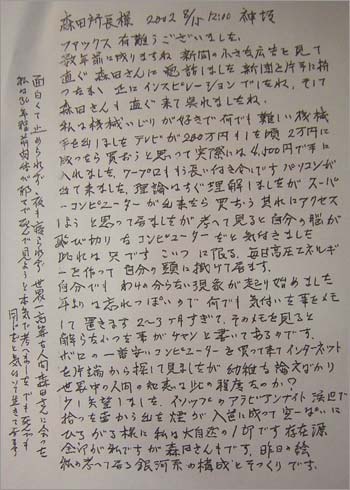 森田所長様 2002 8/15 12:00 神坂
ファックス有難うございました。
数年前に成りますね 新聞の小さな広告を見て
直ぐ森田さんに電話しました 新聞を片手に持
つたまゝ 正にインスピレーションでしたね、そして
森田さんも直ぐ来て呉れましたね。
私は機械いじりが好きで何でも難しい機械
テレビが200万円もする頃 2万円に
成つたら買おうと思つて実際には4,500円で手に
入れました。ワープロも長い付き合いです パソコンが
出て来ました。理論はすぐ理解しましたがスーパ
ーコンピューターが出来たら買おう 其れにアクセス
しようと思つて居ましたが考へて見ると自分の脳が
飛び切りなコンピューターだと気付きました
此れは只です こいつに限る。毎日高圧エネルギ
ーを作って自分の頭に掛けて居ます。
自分でもわけの分らない現象が起り始めました
年よりは忘れつぽいので何でも気付いた事をメモ
して置きます 2〜3ヶ月すぎて、そのメモを見ると
解らなかつた事がチャンと書いてあるのです。
ボロの一番安いコンピューターを買つて来てインターネット
を片端から探して見ましたが幼稚な論文ばかり
世界中の人間の知恵は此の程度なのか?
少々失望しました。イソップのアラビアンナイト 浜辺で
拾つた壷から出た煙が入道に成つて空一ぱいに
ひろがる様に私は大自然の1部です 存在源
全部が私ですが森田さんもです。昨日の絵
私の考へて居る銀河系の構成とそつくりです。
面白くて止められず 夜も寝られず 世界一高年な人間 森田さんに会つた